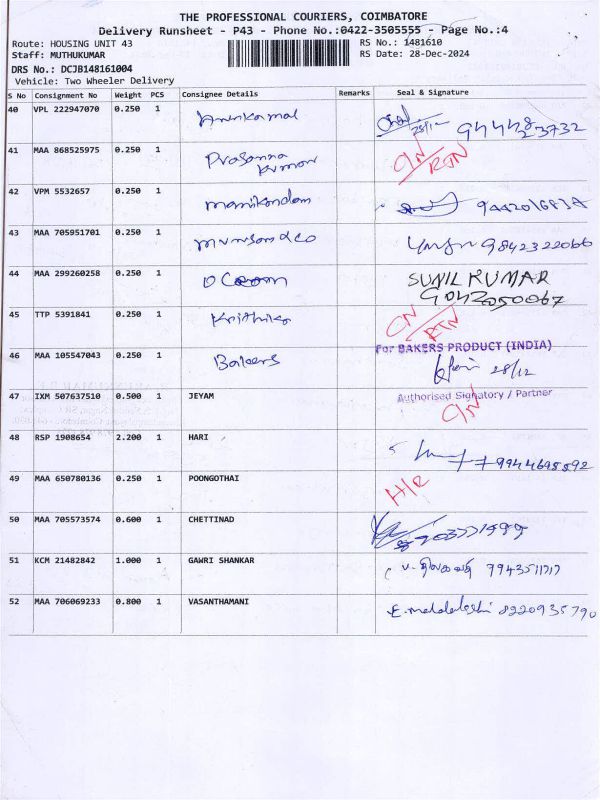 THE PROFESSIONAL COURIERS, COIMBATORE
Delivery Runsheet - P43 - Phone No.:0422-3505555 - Page No.:4
Route: HOUSING UNIT 43 RS No.: 1481610
Staff: MUTHUKUMAR RS Date: 28-Dec-2024
DRS No.: DCJB148161004
Vehicle: Two Wheeler Delivery
S No Consignment No Weight PCS Consignee Details Remarks Seal & Signature
40 VPL 222947070 0.250 1 Arunkamal 28/12
41 MAA 868525975 0.250 1 Prasanna Kumar CN RTN
42 VPM 5532657 0.250 1 manikandan
43 MAA 705951701 0.250 1 9842322066
44 MAA 299260258 0.250 1 SUNIL KUMAR
9042050067
45 TTP 5391841 0.250 1 Krithika CN RTN
46 MAA 105547043 0.250 1 Bakers For BAKERS PRODUCT (INDIA)
28/12
Authorised Signatory / Partner
47 IXM 507637510 0.500 1 JEYAM C/N
48 RSP 1908654 2.200 1 HARI 9944695592
49 MAA 650780136 0.250 1 POONGOTHAI A/R
50 MAA 705573574 0.600 1 CHETTINAD
51 KCM 21482842 1.000 1 GAWRI SHANKAR
52 MAA 706069233 0.800 1 VASANTHAMANI 8220935790